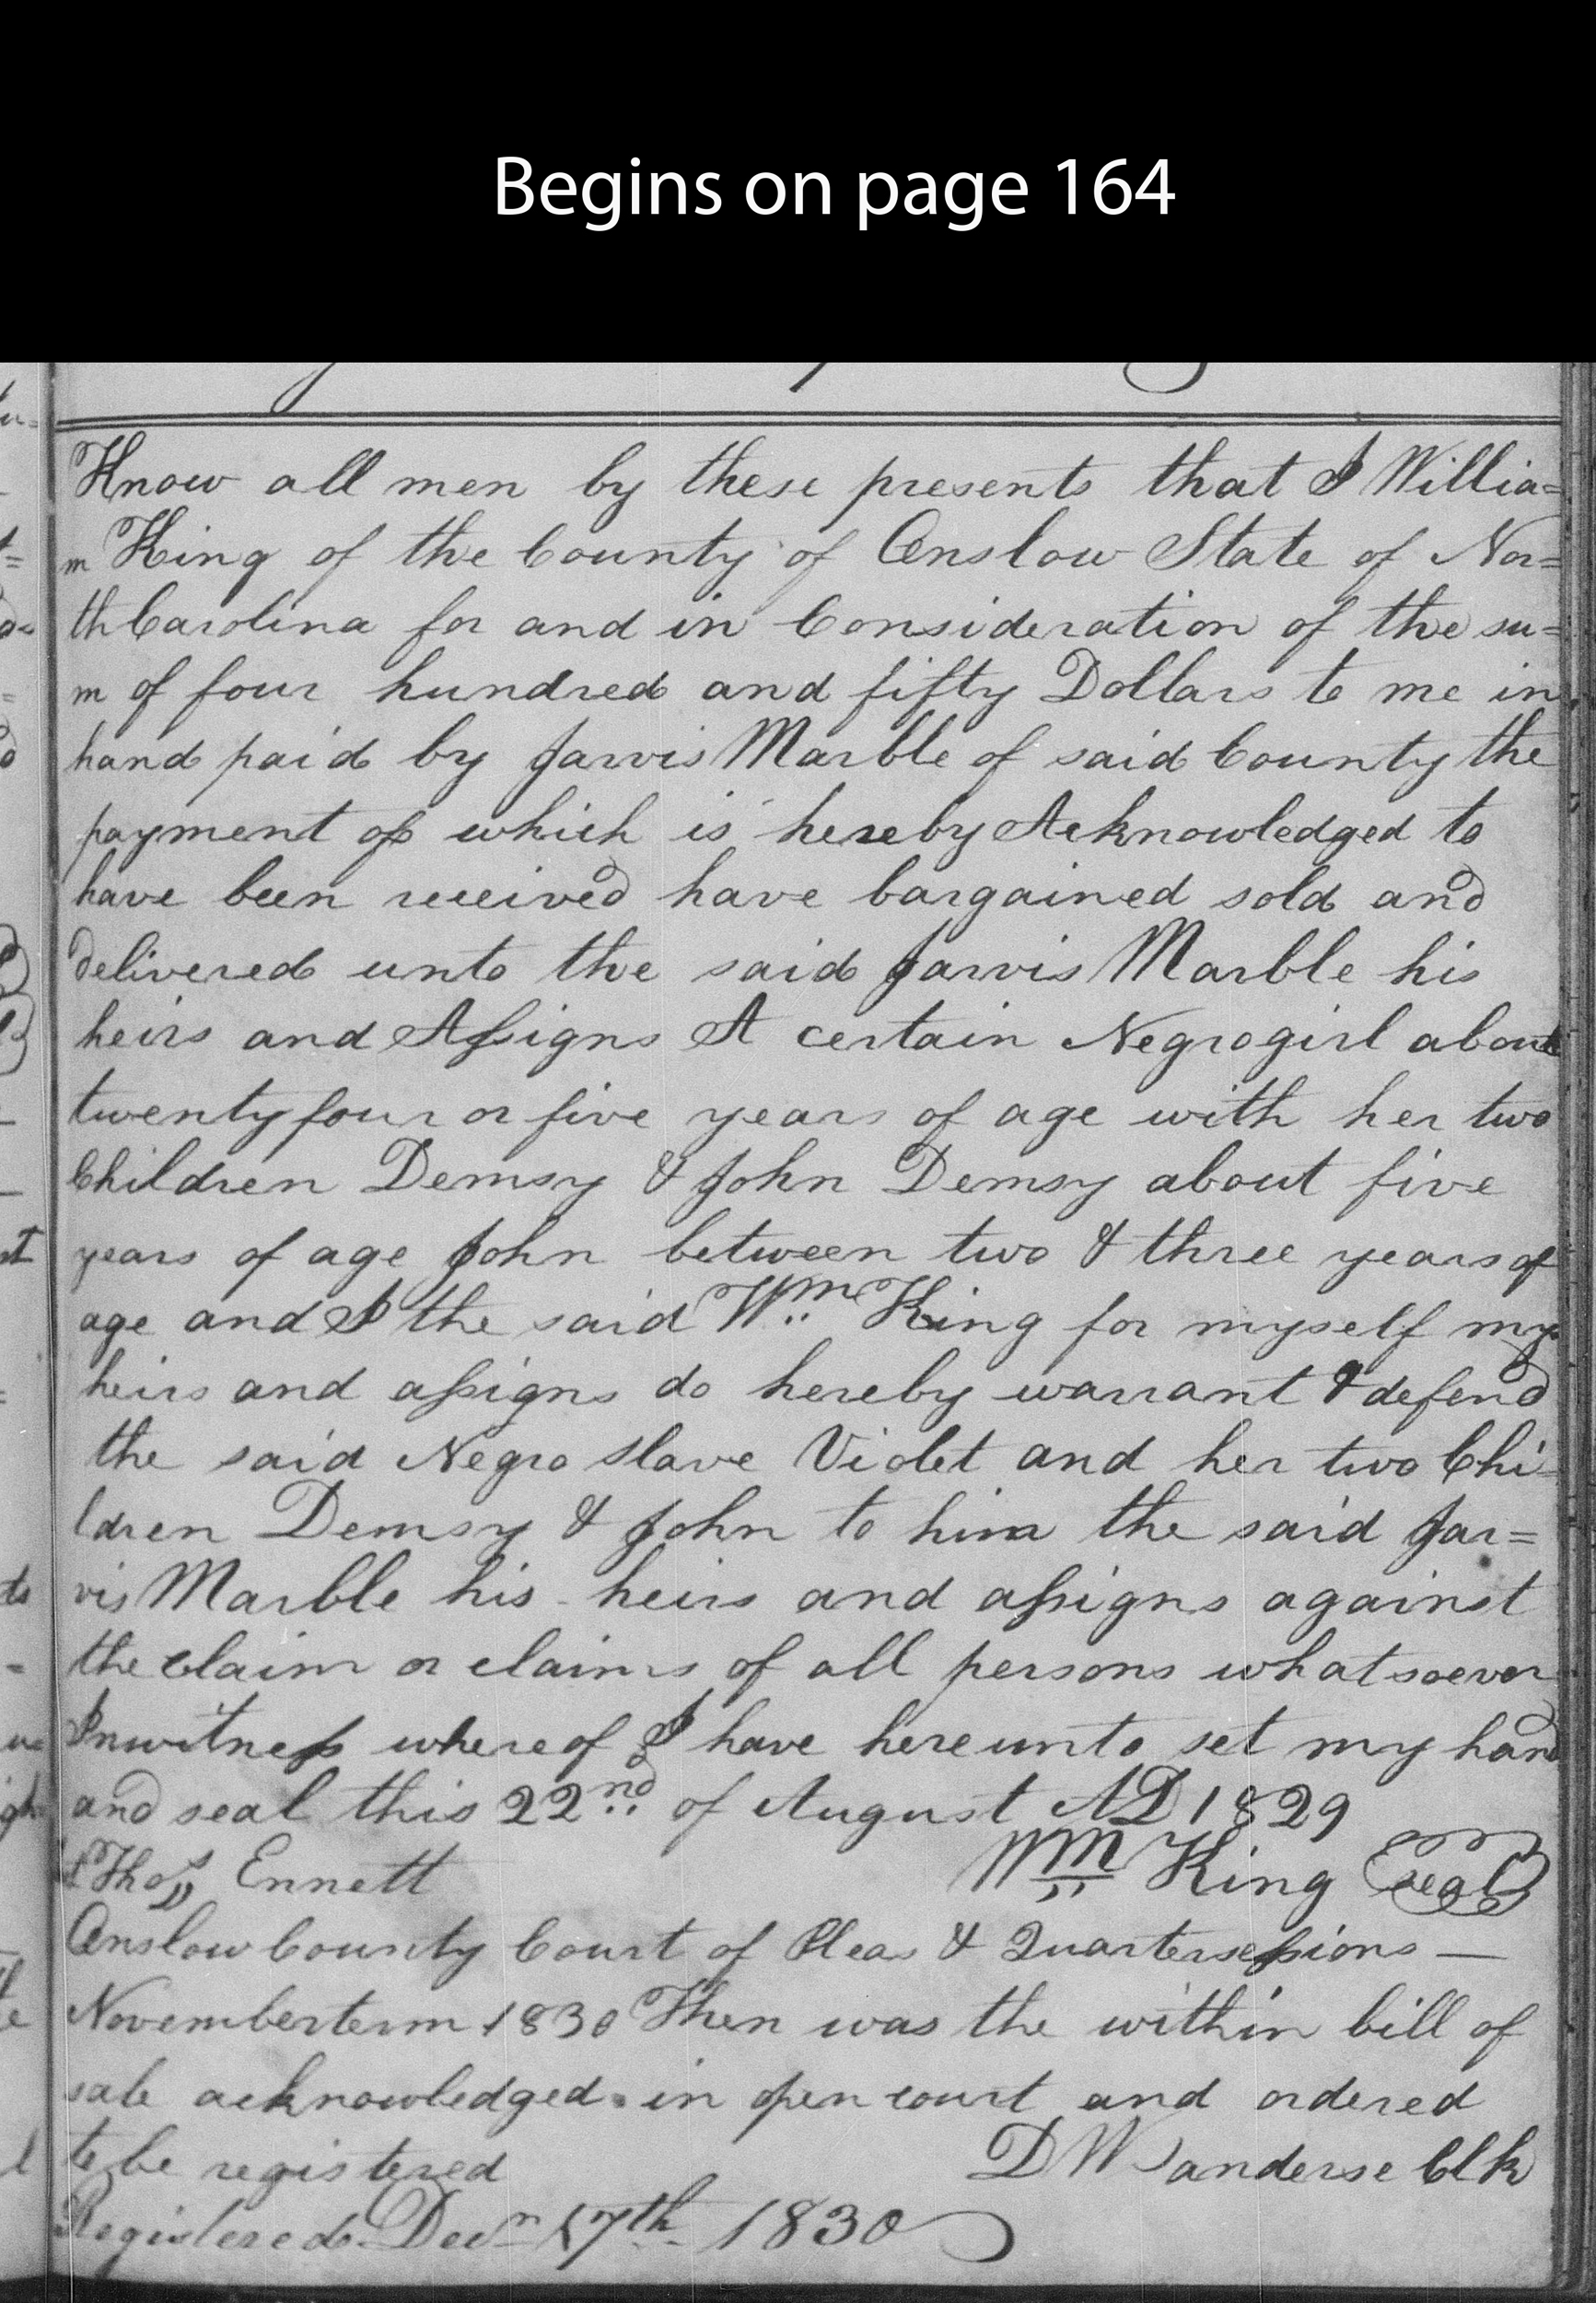 Begins on page 164
Know all men by these presents that I Willia=
m King of the County of Onslow State of Nor=
th Carolina for and in Consideration of the su=
m of four hundred and fifty Dollars to me in
hand paid by Jarvis Marble of said County the
payment of which is hereby Acknowledged to
have been received have bargained sold and
delivered unto the said Jarvis Marble his
heirs and Assigns A certain Negro girl about
twenty four or five years of age with her two
Children Demsy & John Demsy about five
years of age John between two & three years of
age and I the said Wm King for myself my
heirs and assigns do hereby warrant & defend
the said Negro slave Violet and her two Chi=
ldren Demsy & John to him the said Jar=
vis Marble his heirs and assigns against
the claim or claims of all persons whatsoever
In witness whereof I have hereunto set my hand
and seal this 22nd of August AD 1829
Thos Ennett Wm King Seal
Onslow County Court of Pleas & Quartersessions —
Novemberterm 1830 Then was the within bill of
sale acknowledged in open court and ordered
to be registered D W Sanderse Clk
Registered Decr 17th 1830